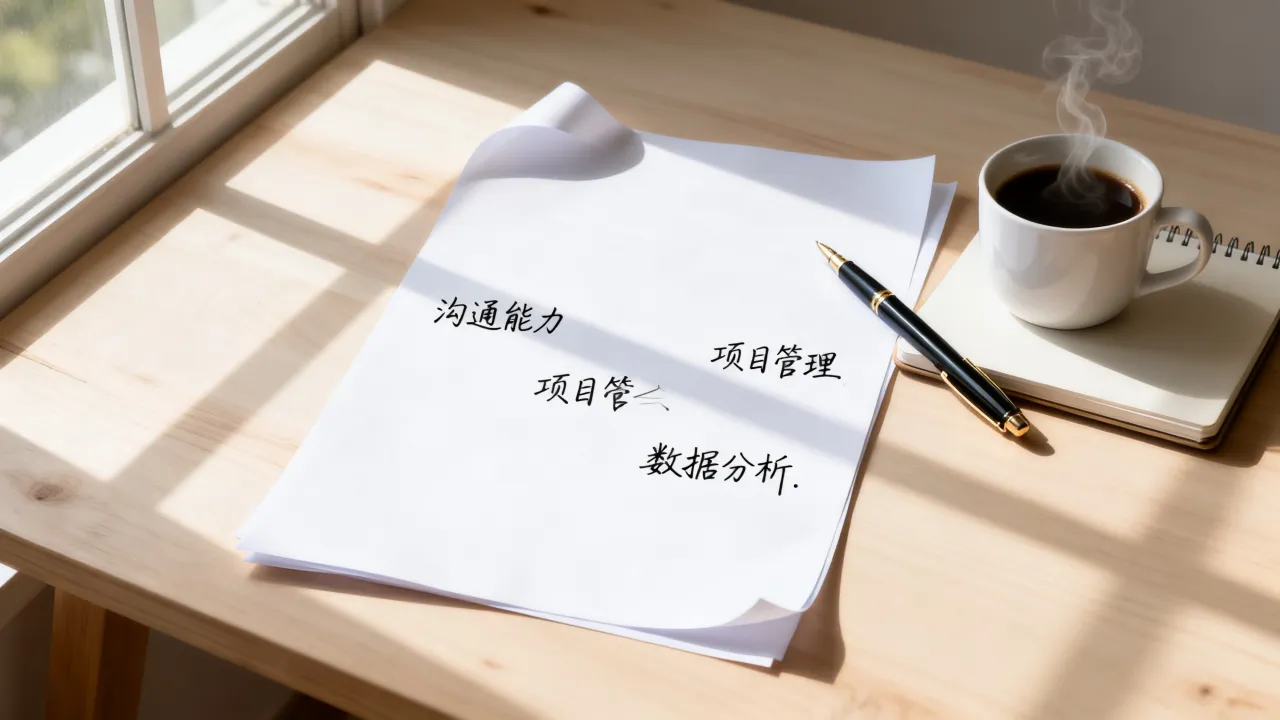 沟通能力
项目管理
项目管
数据分析.